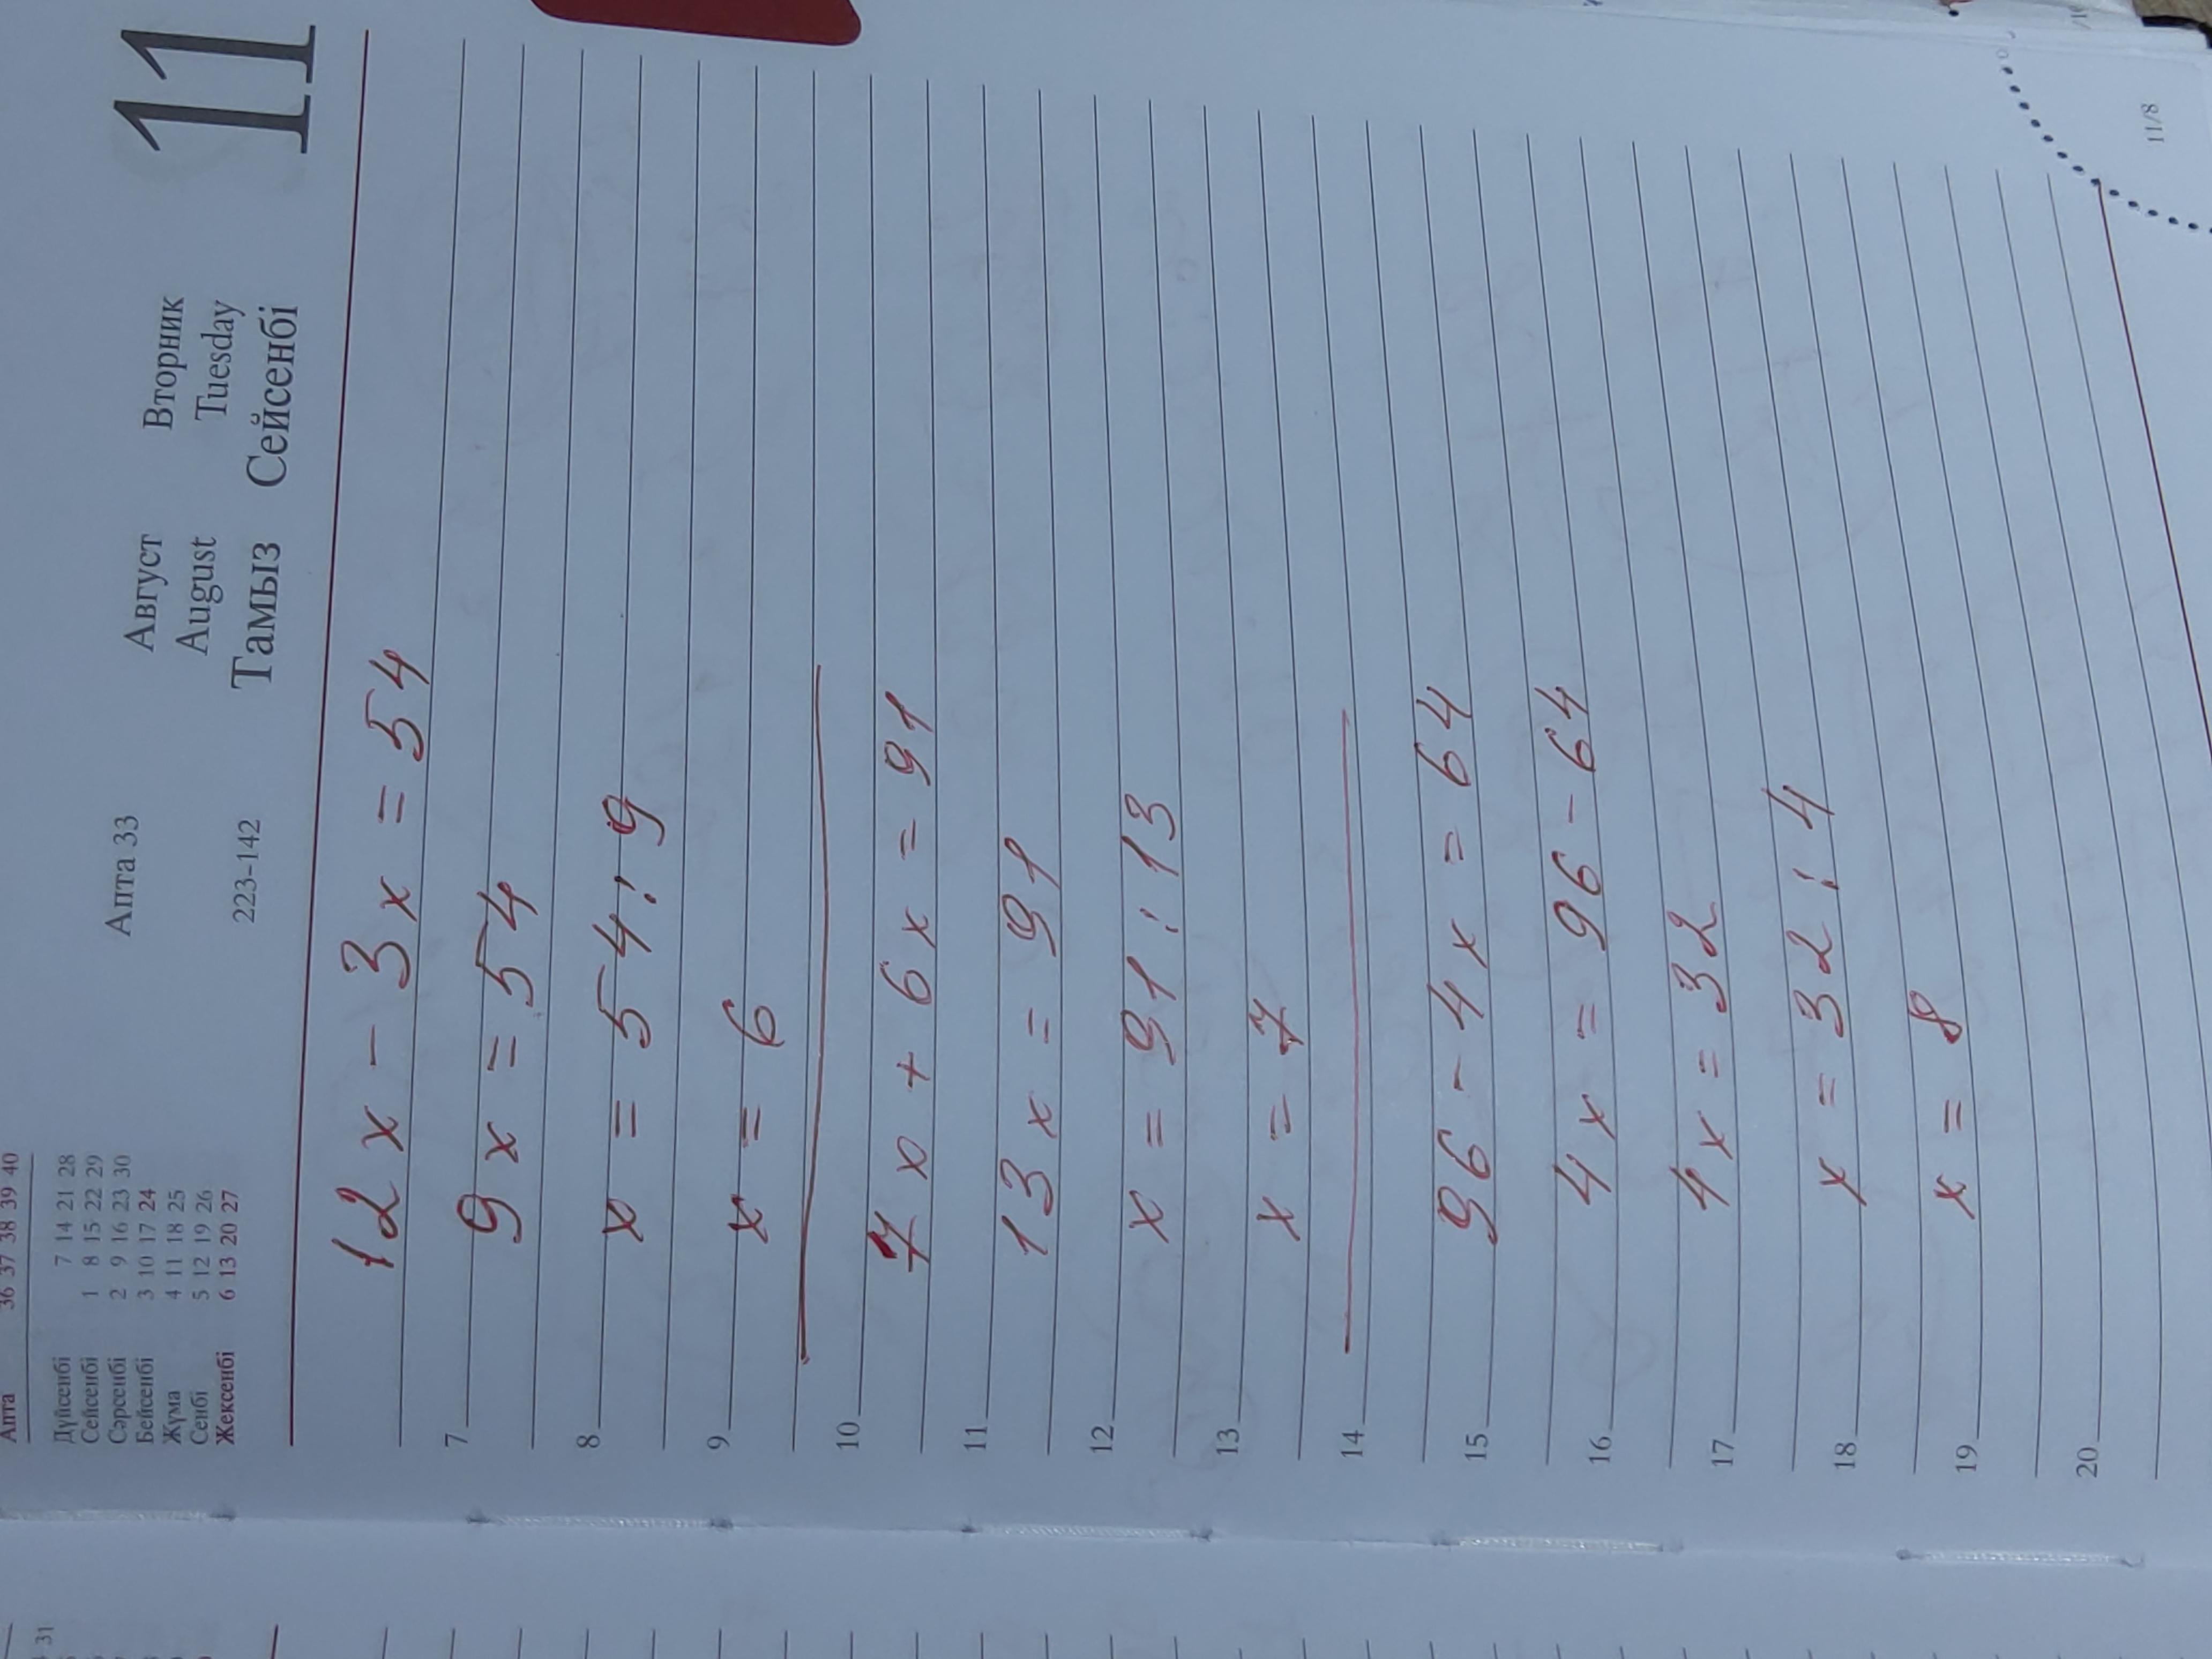 Апта 36 37 38 39 40
Дүйсенбі 7 14 21 28
Сейсенбі 1 8 15 22 29
Сәрсенбі 2 9 16 23 30
Бейсенбі 3 10 17 24
Жұма 4 11 18 25
Сенбі 5 12 19 26
Жексенбі 6 13 20 27
Апта 33
223-142
Август Вторник
August Tuesday
Тамыз Сейсенбі
11
12x - 3x = 54
7 9x = 54
8 x = 54 : 9
9 x = 6
10 7x + 6x = 91
11 13x = 91
12 x = 91 : 13
13 x = 7
14
15 96 - 4x = 64
16 4x = 96 - 64
17 4x = 32
18 x = 32 : 4
19 x = 8
20
11/8
31